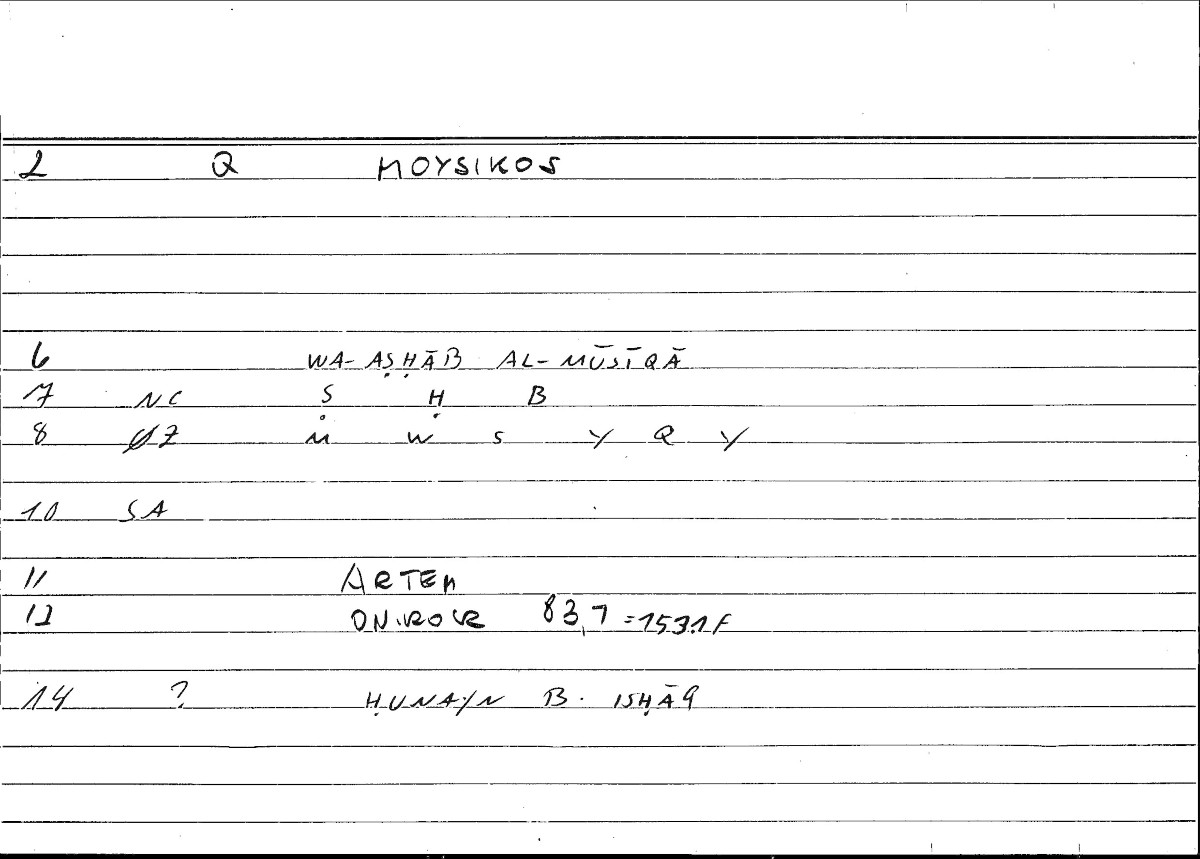 2 Q MOYSIKOS
6 WA-AṢḤĀB AL-MŪSĪQĀ
7 NC Ṣ Ḥ B
8 ØZ M W S Y Q Y
10 SA
11 ARTEM
12 ONIROCR 83,7 =153.1F
14 ? ḤUNAYN B. ISḤĀQ